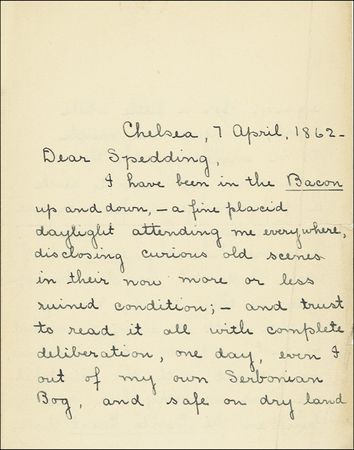 Chelsea, 7 April, 1862-
Dear Spedding,
I have been in the Bacon
up and down, - a fine placid
daylight attending me everywhere,
disclosing curious old scenes
in their now more or less
ruined condition; - and trust
to read it all with complete
deliberation, one day, even I
out of my own Serbonian
Bog, and safe on dry land